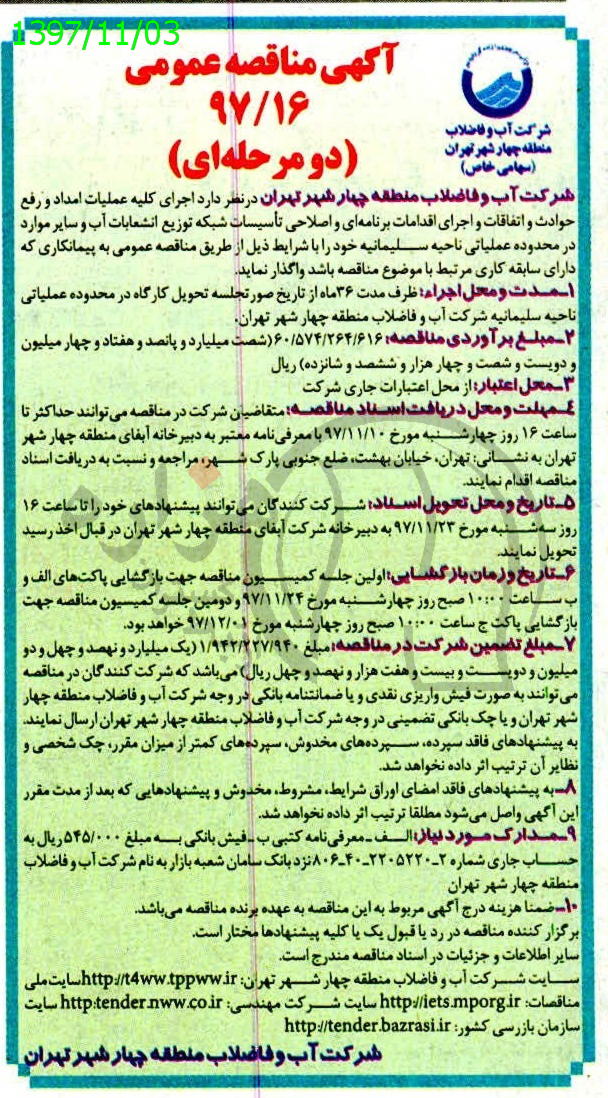 1397/11/03
آگهی مناقصه عمومی
۹۷/۱۶
(دو مرحله‌ای)
شرکت آب و فاضلاب
منطقه چهار شهر تهران
(سهامی خاص)
شرکت آب و فاضلاب منطقه چهار شهر تهران در نظر دارد اجرای کلیه عملیات امداد و رفع
حوادث و اتفاقات و اجرای اقدامات برنامه‌ای و اصلاحی تأسیسات شبکه توزیع انشعابات آب و سایر موارد
در محدوده عملیاتی ناحیه سلیمانیه خود را با شرایط ذیل از طریق مناقصه عمومی به پیمانکاری که
دارای سابقه کاری مرتبط با موضوع مناقصه باشد واگذار نماید.
۱ـ مدت و محل اجراء: ظرف مدت ۳۶ماه از تاریخ صورتجلسه تحویل کارگاه در محدوده عملیاتی
ناحیه سلیمانیه شرکت آب و فاضلاب منطقه چهار شهر تهران.
۲ـ مبلغ برآوردی مناقصه: ۶۰/۵۷۴/۲۶۴/۶۱۶ (شصت میلیارد و پانصد و هفتاد و چهار میلیون
و دویست و شصت و چهار هزار و ششصد و شانزده) ریال
۳ـ محل اعتبار: از محل اعتبارات جاری شرکت
۴ـ مهلت و محل دریافت اسناد مناقصه: متقاضیان شرکت در مناقصه می‌توانند حداکثر تا
ساعت ۱۶ روز چهارشنبه مورخ ۹۷/۱۱/۱۰ با معرفی‌نامه معتبر به دبیرخانه آبفای منطقه چهار شهر
تهران به نشانی: تهران، خیابان بهشت، ضلع جنوبی پارک شهر، مراجعه و نسبت به دریافت اسناد
مناقصه اقدام نمایند.
۵ـ تاریخ و محل تحویل اسناد: شرکت کنندگان می‌توانند پیشنهادهای خود را تا ساعت ۱۶
روز سه‌شنبه مورخ ۹۷/۱۱/۲۳ به دبیرخانه شرکت آبفای منطقه چهار شهر تهران در قبال اخذ رسید
تحویل نمایند.
۶ـ تاریخ و زمان بازگشایی: اولین جلسه کمیسیون مناقصه جهت بازگشایی پاکت‌های الف و
ب ساعت ۱۰:۰۰ صبح روز چهارشنبه مورخ ۹۷/۱۱/۲۴ و دومین جلسه کمیسیون مناقصه جهت
بازگشایی پاکت ج ساعت ۱۰:۰۰ صبح روز چهارشنبه مورخ ۹۷/۱۲/۰۱ خواهد بود.
۷ـ مبلغ تضمین شرکت در مناقصه: مبلغ ۱/۹۴۲/۲۲۷/۹۴۰ (یک میلیارد و نهصد و چهل و دو
میلیون و دویست و بیست و هفت هزار و نهصد و چهل ریال) می‌باشد که شرکت کنندگان در مناقصه
می‌توانند به صورت فیش واریزی نقدی و یا ضمانتنامه بانکی در وجه شرکت آب و فاضلاب منطقه چهار
شهر تهران و یا چک بانکی تضمینی در وجه شرکت آب و فاضلاب منطقه چهار شهر تهران ارسال نمایند.
به پیشنهادهای فاقد سپرده، سپرده‌های مخدوش، سپرده‌های کمتر از میزان مقرر، چک شخصی و
نظایر آن ترتیب اثر داده نخواهد شد.
۸ـ به پیشنهادهای فاقد امضای اوراق شرایط، مشروط، مخدوش و پیشنهادهایی که بعد از مدت مقرر
این آگهی واصل می‌شود مطلقا ترتیب اثر داده نخواهد شد.
۹ـ مدارک مورد نیاز: الف ـ معرفی‌نامه کتبی ب ـ فیش بانکی به مبلغ ۵۴۵/۰۰۰ ریال به
حساب جاری شماره ۲ـ۲۲۰۵۲۲۰ـ۴۰ـ۸۰۶ نزد بانک سامان شعبه بازار به نام شرکت آب و فاضلاب
منطقه چهار شهر تهران
۱۰ـ ضمنا هزینه درج آگهی مربوط به این مناقصه به عهده برنده مناقصه می‌باشد.
برگزار کننده مناقصه در رد یا قبول یک یا کلیه پیشنهادها مختار است.
سایر اطلاعات و جزئیات در اسناد مناقصه مندرج است.
سایت شرکت آب و فاضلاب منطقه چهار شهر تهران: http://t4ww.tppww.ir سایت ملی
مناقصات: http://iets.mporg.ir سایت شرکت مهندسی: http:tender.nww.co.ir سایت
سازمان بازرسی کشور: http://tender.bazrasi.ir
شرکت آب و فاضلاب منطقه چهار شهر تهران